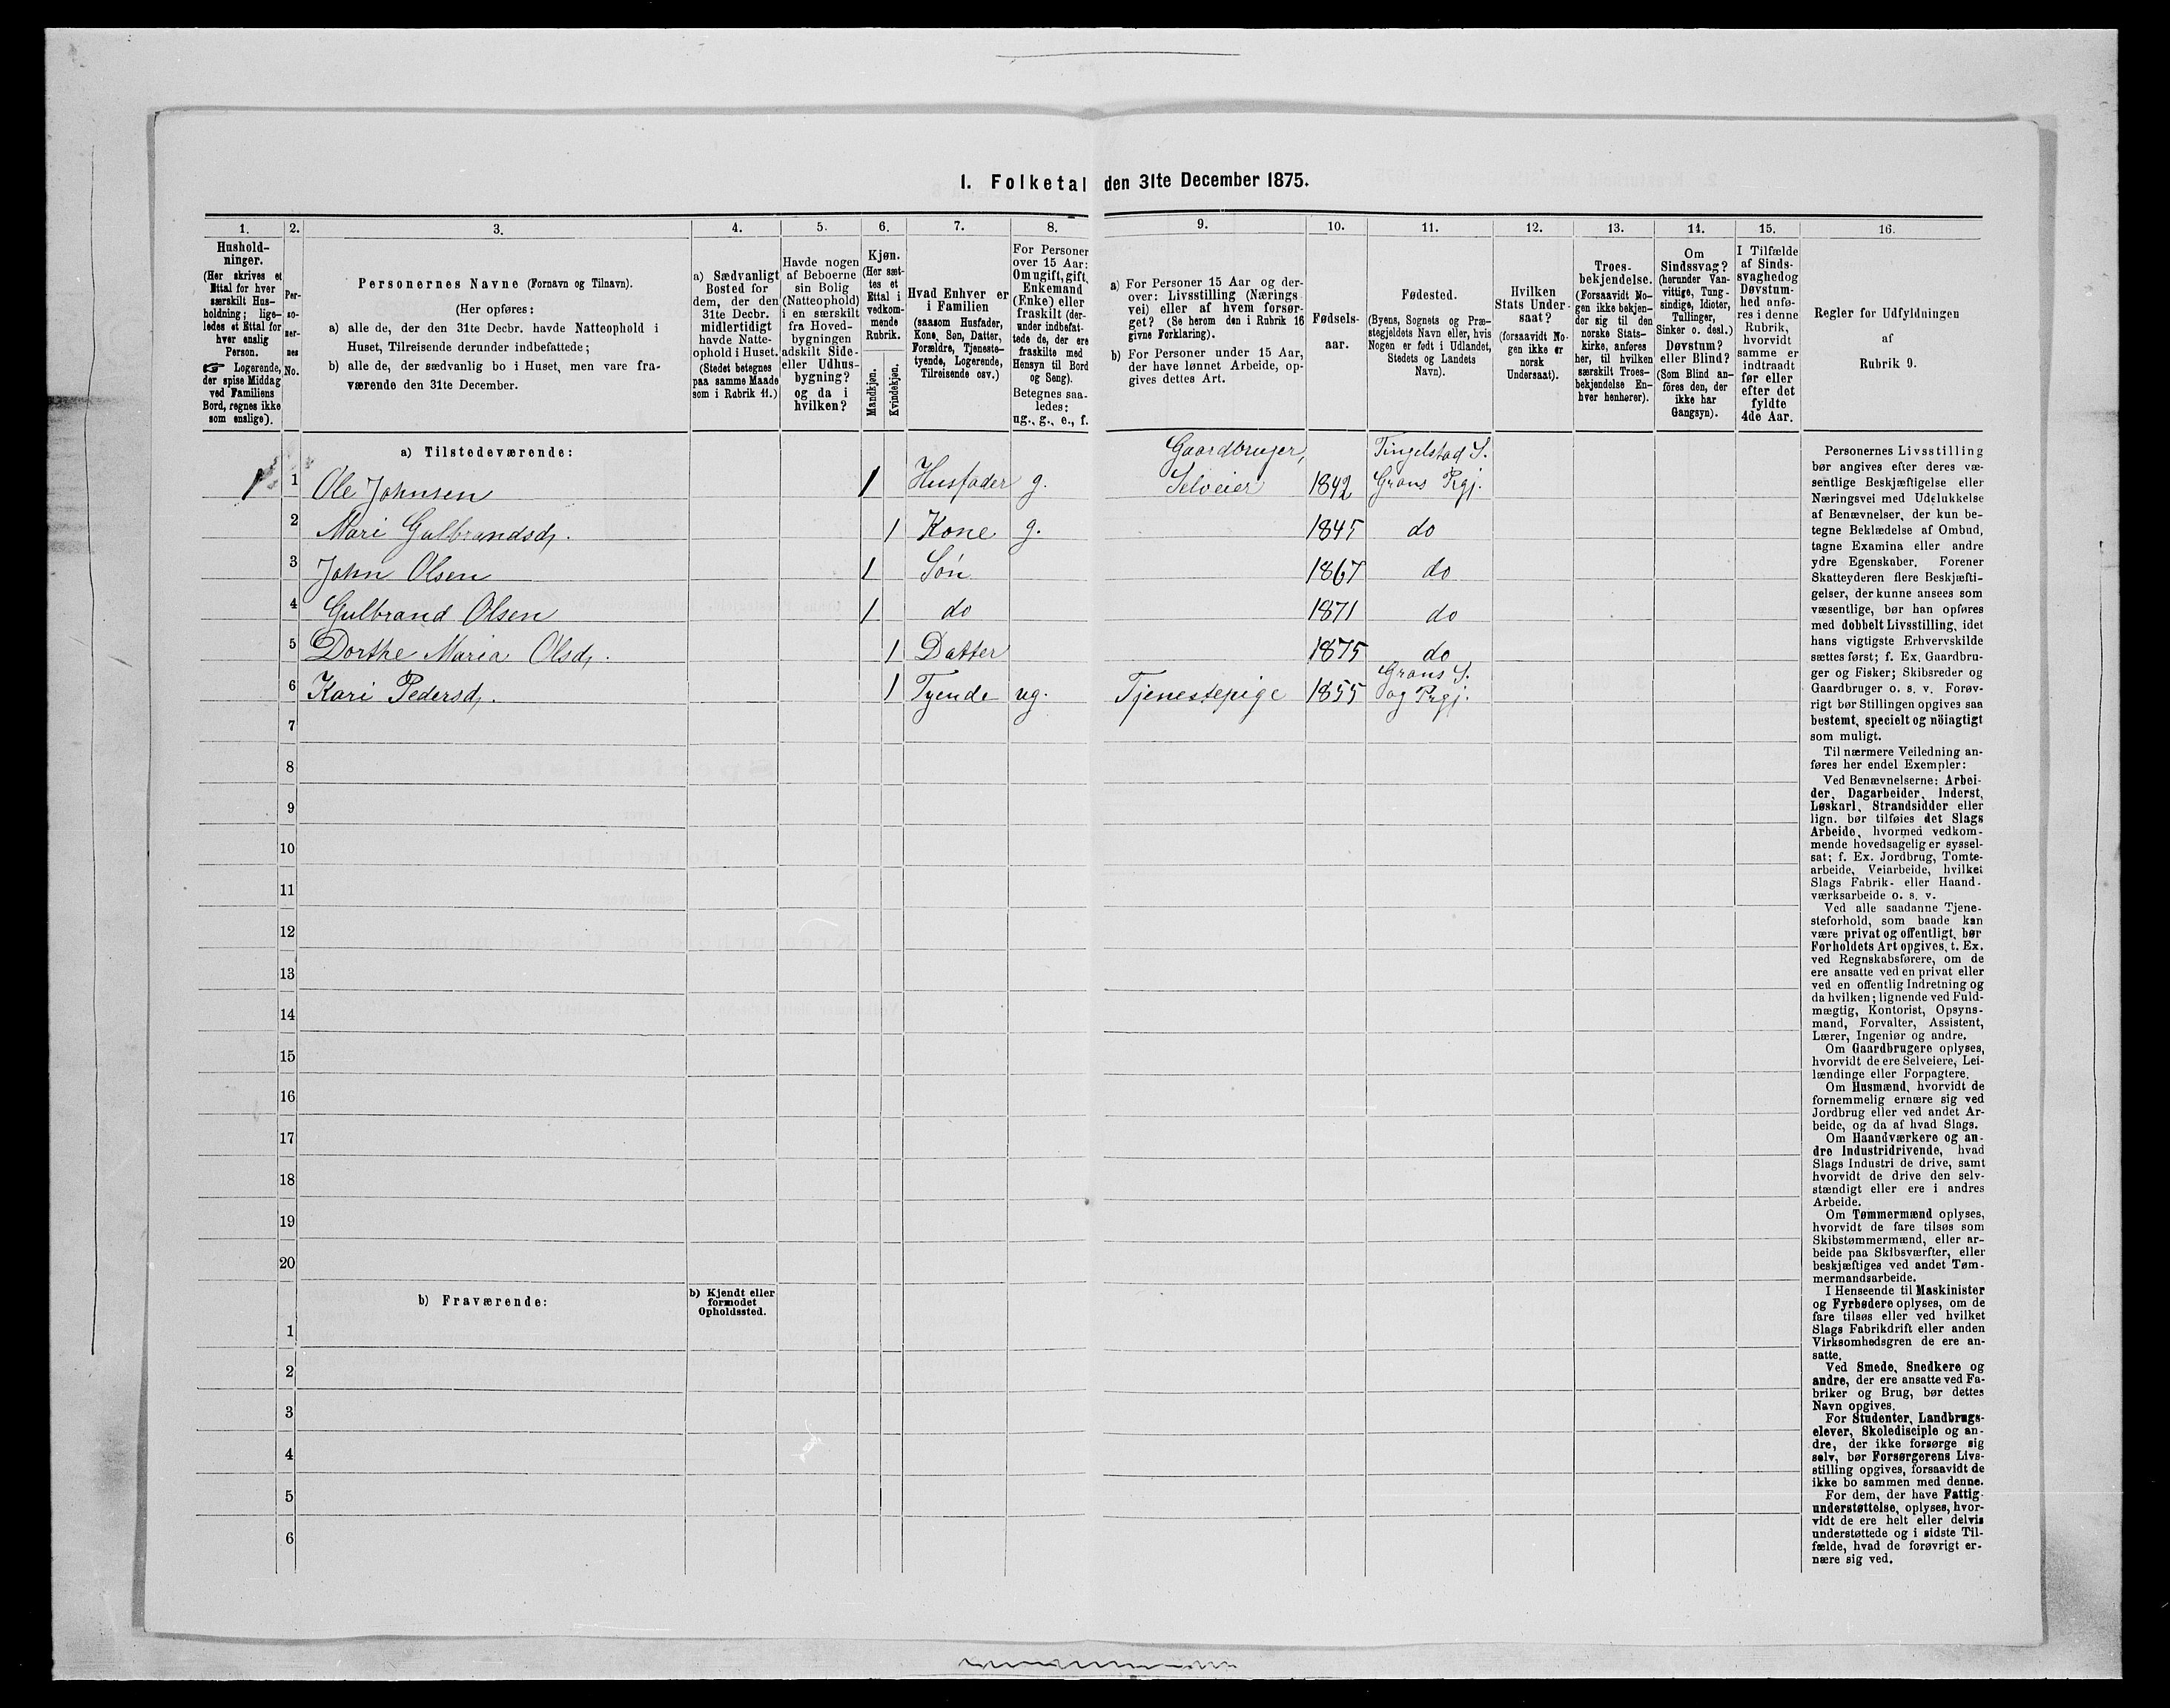 1. Folketal den 31te December 1875.
1. 2. 3. 4. 5. 6. 7. 8. 9. 10. 11. 12. 13. 14. 15. 16.
Hushold-
ninger.
(Her skrives et
Ettal for hver
særskilt Hus-
holdning; lige-
ledes et Ettal for
hver enslig
Person.
☞ Logerende,
der spise Middag
ved Familiens
Bord, regnes ikke
som enslige).
Per-
so-
ner-
nes
No.
Personernes Navne (Fornavn og Tilnavn).
(Her opføres:
a) alle de, der den 31te Decbr. havde Natteophold i
Huset, Tilreisende derunder indbefattede;
b) alle de, der sædvanlig bo i Huset, men vare fra-
værende den 31te December.
a) Sædvanligt
Bosted for
dem, der den
31te Decbr.
midlertidigt
havde Natte-
ophold i Huset.
(Stedet betegnes
paa samme Maade
som i Rubrik 11.)
Havde nogen
af Beboerne
sin Bolig
(Natteophold)
i en særskilt
fra Hoved-
bygningen
adskilt Side-
eller Udhus-
bygning?
og da i
hvilken?
Kjøn.
(Her sæt-
tes et
Ettal i
vedkom-
mende
Rubrik.
Mandkjøn.
Kvindekjøn.
Hvad Enhver er
i Familien
(saasom Husfader,
Kone, Søn, Datter,
Forældre, Tjeneste-
tyende, Logerende,
Tilreisende osv.)
For Personer
over 15 Aar:
Om ugift, gift,
Enkemand
(Enke) eller
fraskilt (der-
under indbefat-
tede de, der ere
fraskilte med
Hensyn til Bord
og Seng).
Betegnes saa-
ledes:
ug., g., e., f.
a) For Personer 15 Aar og der-
over: Livsstilling (Nærings-
vei) eller af hvem forsør-
get? (Se herom den i Rubrik 16
givne Forklaring).
b) For Personer under 15 Aar,
der have lønnet Arbeide, op-
gives dettes Art.
Fødsels-
aar.
Fødested.
(Byens, Sognets og Præ-
stegjeldets Navn eller, hvis
Nogen er født i Udlandet,
Stedets og Landets
Navn).
Hvilken
Stats Under-
saat?
(forsaavidt No-
gen ikke er
norsk
Undersaat).
Troes-
bekjendelse.
(Forsaavidt No-
gen ikke bekjen-
der sig til den
norske Stats-
kirke, anføres
her, til hvilken
særskilt Troes-
bekjendelse En-
hver henhører).
Om
Sindssvag?
(herunder Van-
vittige, Tung-
sindige, Idioter,
Tullinger,
Sinker o. desl.)
Døvstum?
eller Blind?
(Som Blind an-
føres den, der
ikke har
Gangsyn).
I Tilfælde
af Sinds-
svaghed og
Døvstum-
hed anfø-
res i denne
Rubrik,
hvorvidt
samme er
indtraadt
før eller
efter det
fyldte
4de Aar.
Regler for Udfyldningen
af
Rubrik 9.
a) Tilstedeværende:
1 1 Ole Johnsen 1 Husfader g. Gaardbruger, Selveier 1842 Tingelstad S. Grans Prgj.
2 Mari Gulbrandsd. 1 Kone g. 1845 do
3 John Olsen 1 Søn 1867 do
4 Gulbrand Olsen 1 do 1871 do
5 Dorthe Maria Olsd. 1 Datter 1875 do
6 Kari Pedersd. 1 Tyende ug. Tjenestepige 1855 Grans S. og Prgj.
7
8
9
10
11
12
13
14
15
16
17
18
19
20
b) Fraværende:
b) Kjendt eller
formodet
Opholdssted.
1
2
3
4
5
6
Personernes Livsstilling
bør angives efter deres væ-
sentlige Beskjæftigelse eller
Næringsvei med Udelukkelse
af Benævnelser, der kun be-
tegne Beklædelse af Ombud,
tagne Examina eller andre
ydre Egenskaber. Forener
Skatteyderen flere Beskjæfti-
gelser, der kunne ansees som
væsentlige, bør han opføres
med dobbelt Livsstilling, idet
hans vigtigste Erhvervskilde
sættes først; f. Ex. Gaardbru-
ger og Fisker; Skibsreder og
Gaardbruger o. s. v. Forøv-
rigt bør Stillingen opgives saa
bestemt, specielt og nöiagtigt
som muligt.
Til nærmere Veiledning an-
føres her endel Exempler:
Ved Benævnelserne: Arbei-
der, Dagarbeider, Inderst,
Løskarl, Strandsidder eller
lign. bør tilføies det Slags
Arbeide, hvormed vedkom-
mende hovedsagelig er syssel-
sat; f. Ex. Jordbrug, Tomte-
arbeide, Veiarbeide, hvilket
Slags Fabrik- eller Haand-
værksarbeide o. s. v.
Ved alle saadanne Tjene-
steforhold, som baade kan
være privat og offentligt, bør
Forholdets Art opgives, t. Ex.
ved Regnskabsførere, om de
ere ansatte ved en privat eller
ved en offentlig Indretning og
da hvilken; lignende ved Fuld-
mægtig, Kontorist, Opsyns-
mand, Forvalter, Assistent,
Lærer, Ingeniør og andre.
Om Gaardbrugere oplyses,
hvorvidt de ere Selveiere, Lei-
lændinge eller Forpagtere.
Om Husmænd, hvorvidt de
fornemmelig ernære sig ved
Jordbrug eller ved andet Ar-
beide, og da af hvad Slags.
Om Haandværkere og an-
dre Industridrivende, hvad
Slags Industri de drive, samt
hvorvidt de drive den selv-
stændigt eller ere i andres
Arbeide.
Om Tømmermænd oplyses,
hvorvidt de fare tilsøs som
Skibstømmermænd, eller ar-
beide paa Skibsværfter, eller
beskjæftiges ved andet Tøm-
mermandsarbeide.
I Henseende til Maskinister
og Fyrbødere oplyses, om de
fare tilsøs eller ved hvilket
Slags Fabrikdrift eller anden
Virksomhedsgren de ere an-
satte.
Ved Smede, Snedkere og
andre, der ere ansatte ved Fa-
briker og Brug, bør dettes
Navn opgives.
For Studenter, Landbrugs-
elever, Skoledisciple og an-
dre, der ikke forsørge sig
selv, bør Forsørgerens Livs-
stilling opgives, forsaavidt de
ikke bo sammen med denne.
For dem, der have Fattig-
understøttelse, oplyses, hvor-
vidt de ere helt eller delvis
understøttede og i sidste Til-
fælde, hvad de forøvrigt er-
nære sig ved.